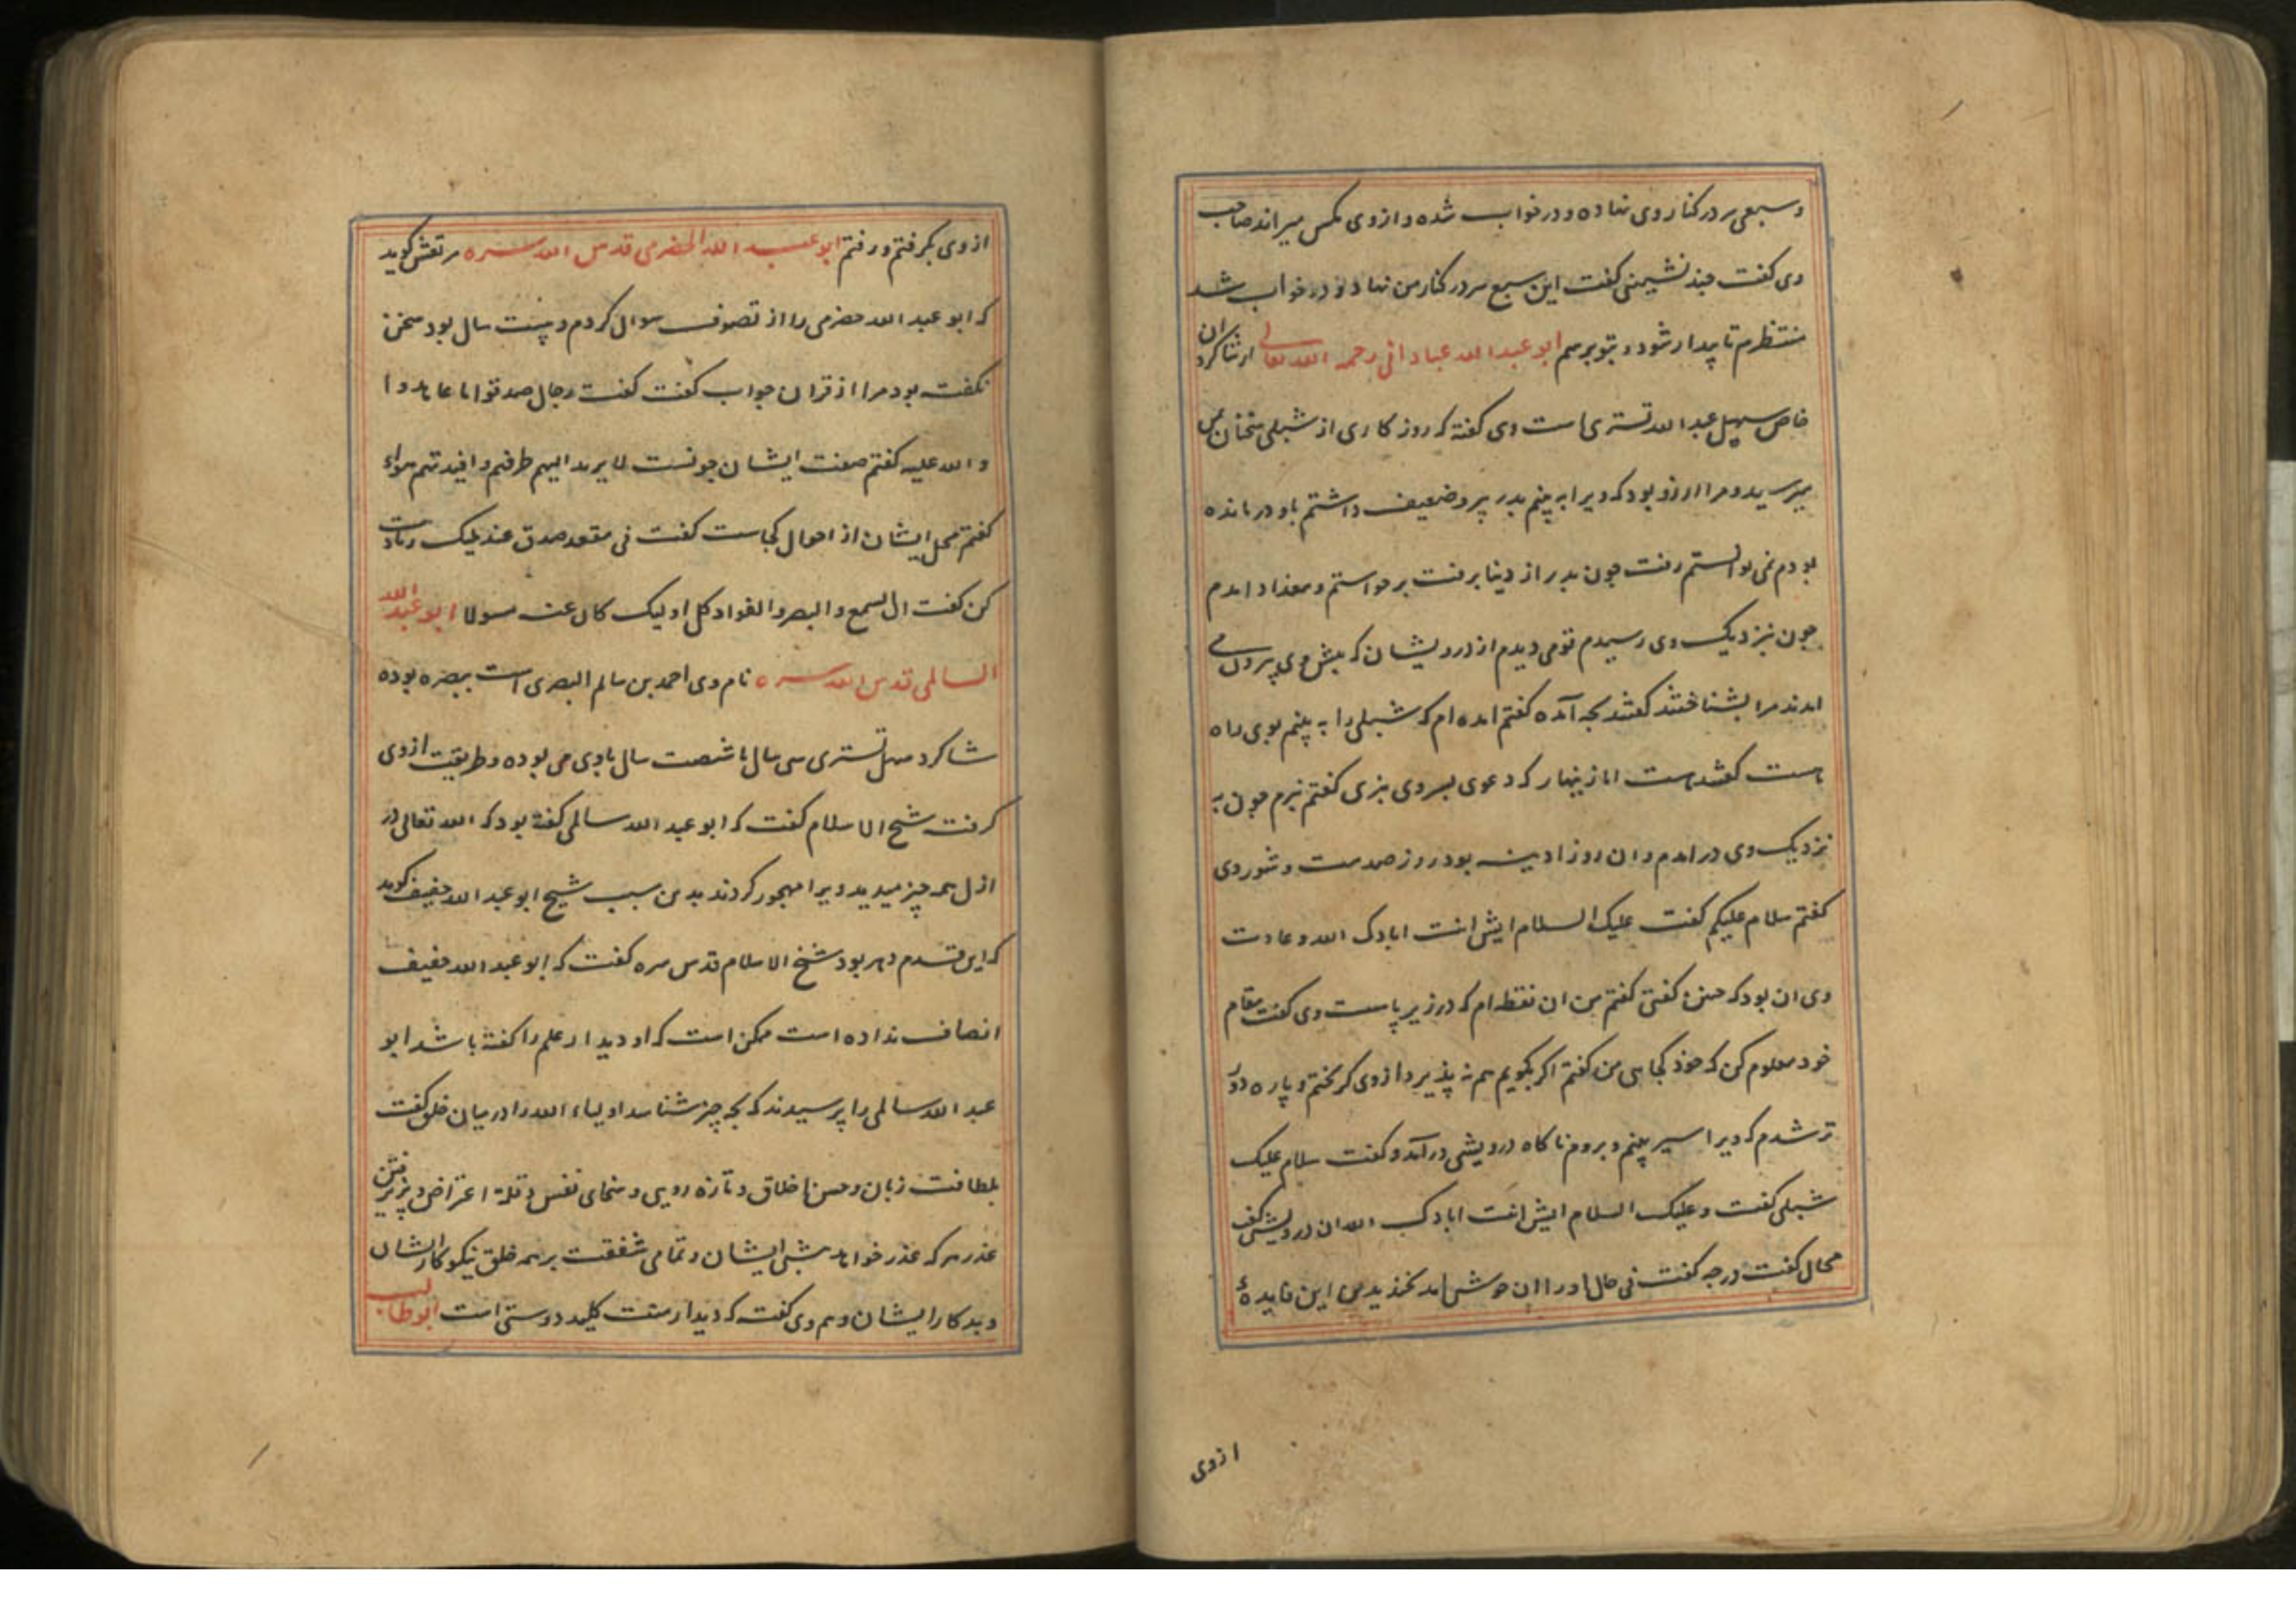 وسبعی سر در کنار وی نهاده و در خواب شده و از وی مکس میراند صاحب
وی کفت چند نشینی کفت این سبع سر در کنار من نهاد و در خواب شد
منتظرم تا بیدار شود و بتو برسم ابو عبد الله عبادانی رحمه الله تعالی از شاکردان
خاص سهل عبد الله تستری است وی کفته که روزکاری از شبلی سخنان بمن
میرسید و مرا ارزو بود که ویرا به بینم پدر پیر و ضعیف داشتم باو درمانده
بودم نمی توانستم رفت چون پدر از دنیا برفت برخواستم و ببغداد امدم
چون نزدیک وی رسیدم قومی دیدم از درویشان که پیش وی بیرون می
امدند مرا بشناختند کفتند بچه آمده کفتم امده ام که شبلی را به بینم بوی راه
هست کفتند هست اما زینهار که دعوی بسر وی نبری کفتم نبرم چون به
نزدیک وی در امدم و ان روز ادینه بود روز صدمت و شور وی
کفتم سلام علیکم کفت علیک السلام ایش انت ابادک الله و عادت
وی ان بود که چنین کفتی کفتم من ان نقطه ام که در زیر باست وی کفت مقام
خود معلوم کن که خود کجایی من کفتم اکر بکویم هم نه پذیرد از وی کریختم و پاره دور
تر شدم که ویرا سیر بینم و بروم ناکاه درویشی در آمد و کفت سلام علیک
شبلی کفت وعلیک السلام ایش انت ابادک الله ان درویش کفت
محال کفت در چه کفت فی حال او را ان خوش امد بخندید من این فایده
از وی
از وی بکرفتم و رفتم ابو عبد الله الحضرمی قدس الله سره مرتعش کوید
که ابو عبد الله حضرمی را از تصوف سوال کردم و بیست سال بود سخن
نکفته بود مرا از قران جواب کفت کفت رجال صدقوا ما عاهدوا
والله علیه کفتم صفت ایشان چونست لا یرتد الیهم طرفهم وافیدتهم هواء
کفتم محل ایشان از احوال کجاست کفت فی مقعد صدق عند ملیک زیادت
کن کفت ان السمع والبصر والفواد کل اولیک کان عنه مسولا ابو عبد الله
السالمی قدس الله سره نام وی احمد بن سالم البصری است ببصره بوده
شاکرد سهل تستری سی سال یا شصت سال باوی می بوده و طریقت از وی
کرفت شیخ الاسلام کفت که ابو عبد الله سالمی کفته بود که الله تعالی در
ازل همه چیز میدید ویرا مهجور کردند بدین سبب شیخ ابو عبد الله خفیف کوید
که این قدم دهر بود شیخ الاسلام قدس سره کفت که ابو عبد الله خفیف
انصاف نداده است ممکن است که او دیدار علم را کفته باشد ابو
عبد الله سالمی را پرسیدند که بچه چیز شناسد اولیاء الله را در میان خلق کفت
بلطافت زبان و حسن اخلاق و تازه رویی و سخای نفس و قلة اعتراض و پذیرفتن
عذر هر که عذر خواهد پیش ایشان و تمامی شفقت بر همه خلق نیکو کار ایشان
و بد کار ایشان و هم وی کفت که دیدار منت کلید دوستی است ابو طالب